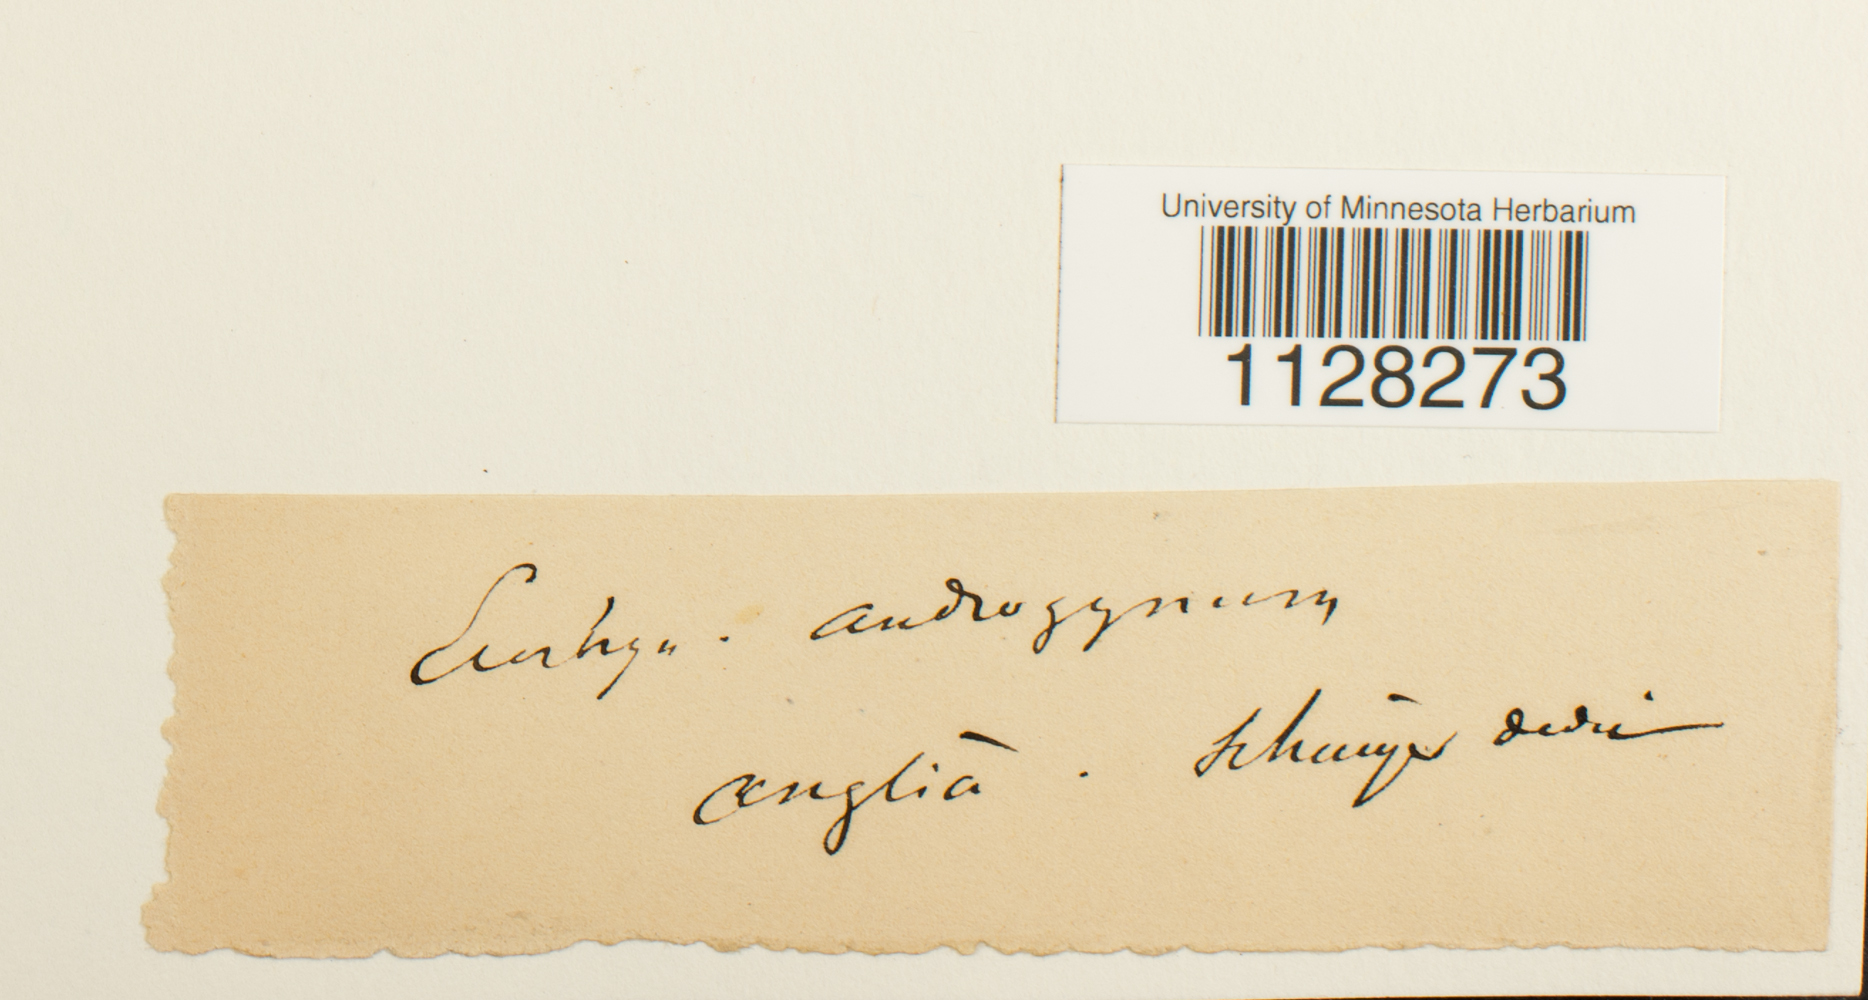 University of Minnesota Herbarium
1128273
androgynum
angliâ . dedit